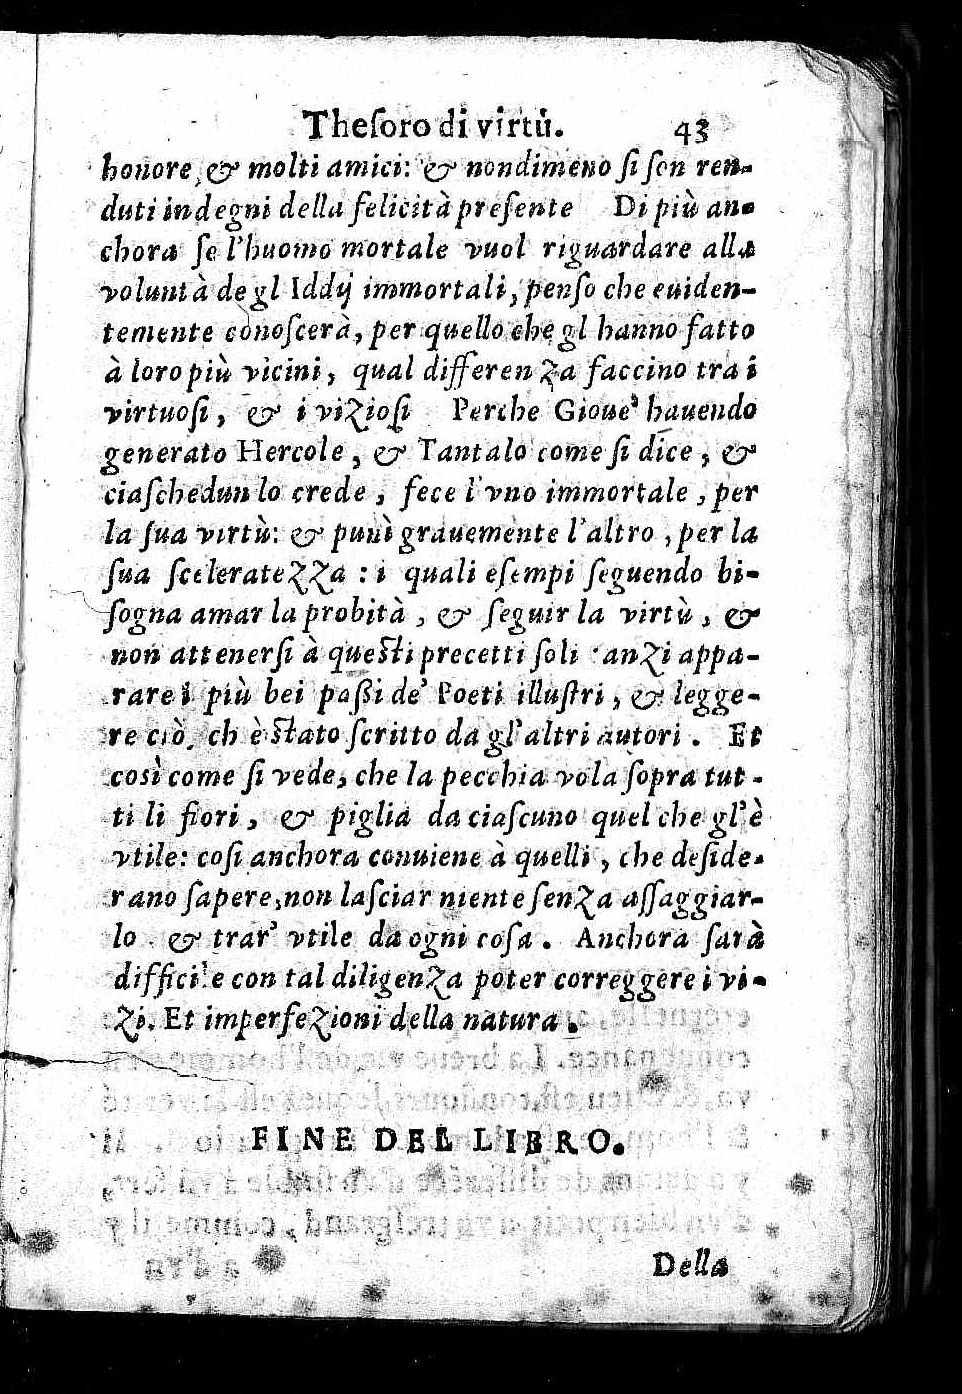 Theſoro di virtù. 43
honore, & molti amici: & nondimeno ſi ſon ren-
duti indegni della felicità preſente Di più an-
chora ſe l'huomo mortale vuol riguardare alla
voluntà de gl Iddij immortali, penſo che euiden-
temente conoſcerà, per quello che gl hanno fatto
à loro più vicini, qual differenza faccino tra i
virtuoſi, & i vizioſi Perche Gioue' hauendo
generato Hercole, & Tantalo come ſi dice, &
ciaſchedun lo crede, fece l'vno immortale, per
la ſua virtù: & punì grauemente l'altro, per la
ſua ſceleratezza: i quali eſempi ſeguendo bi-
ſogna amar la probità, & ſeguir la virtù, &
non attenerſi à queſti precetti ſoli: anzi appa-
rare i più bei paſſi de' Poeti illuſtri, & legge-
re ciò, ch è ſtato ſcritto da gl'altri autori. Et
così come ſi vede, che la pecchia vola ſopra tut-
ti li fiori, & piglia da ciaſcuno quel che gl'è
vtile: coſi anchora conuiene à quelli, che deſide-
rano ſapere, non laſciar niente ſenza aſſaggiar-
lo & trar' vtile da ogni coſa. Anchora ſarà
difficile con tal diligenza poter correggere i vi-
zi. Et imperfezioni della natura.
FINE DEL LIBRO.
Della